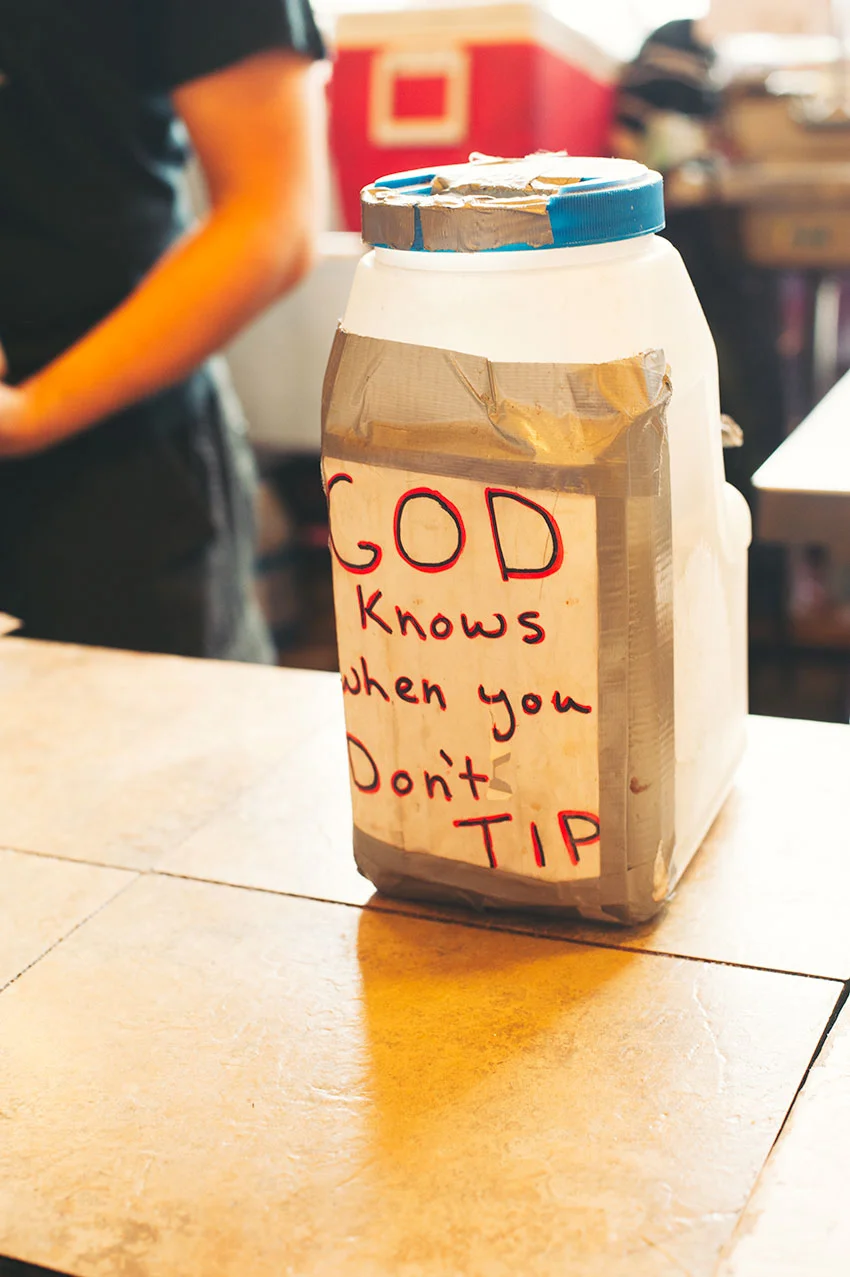 GOD
Knows
when you
Don't
TIP